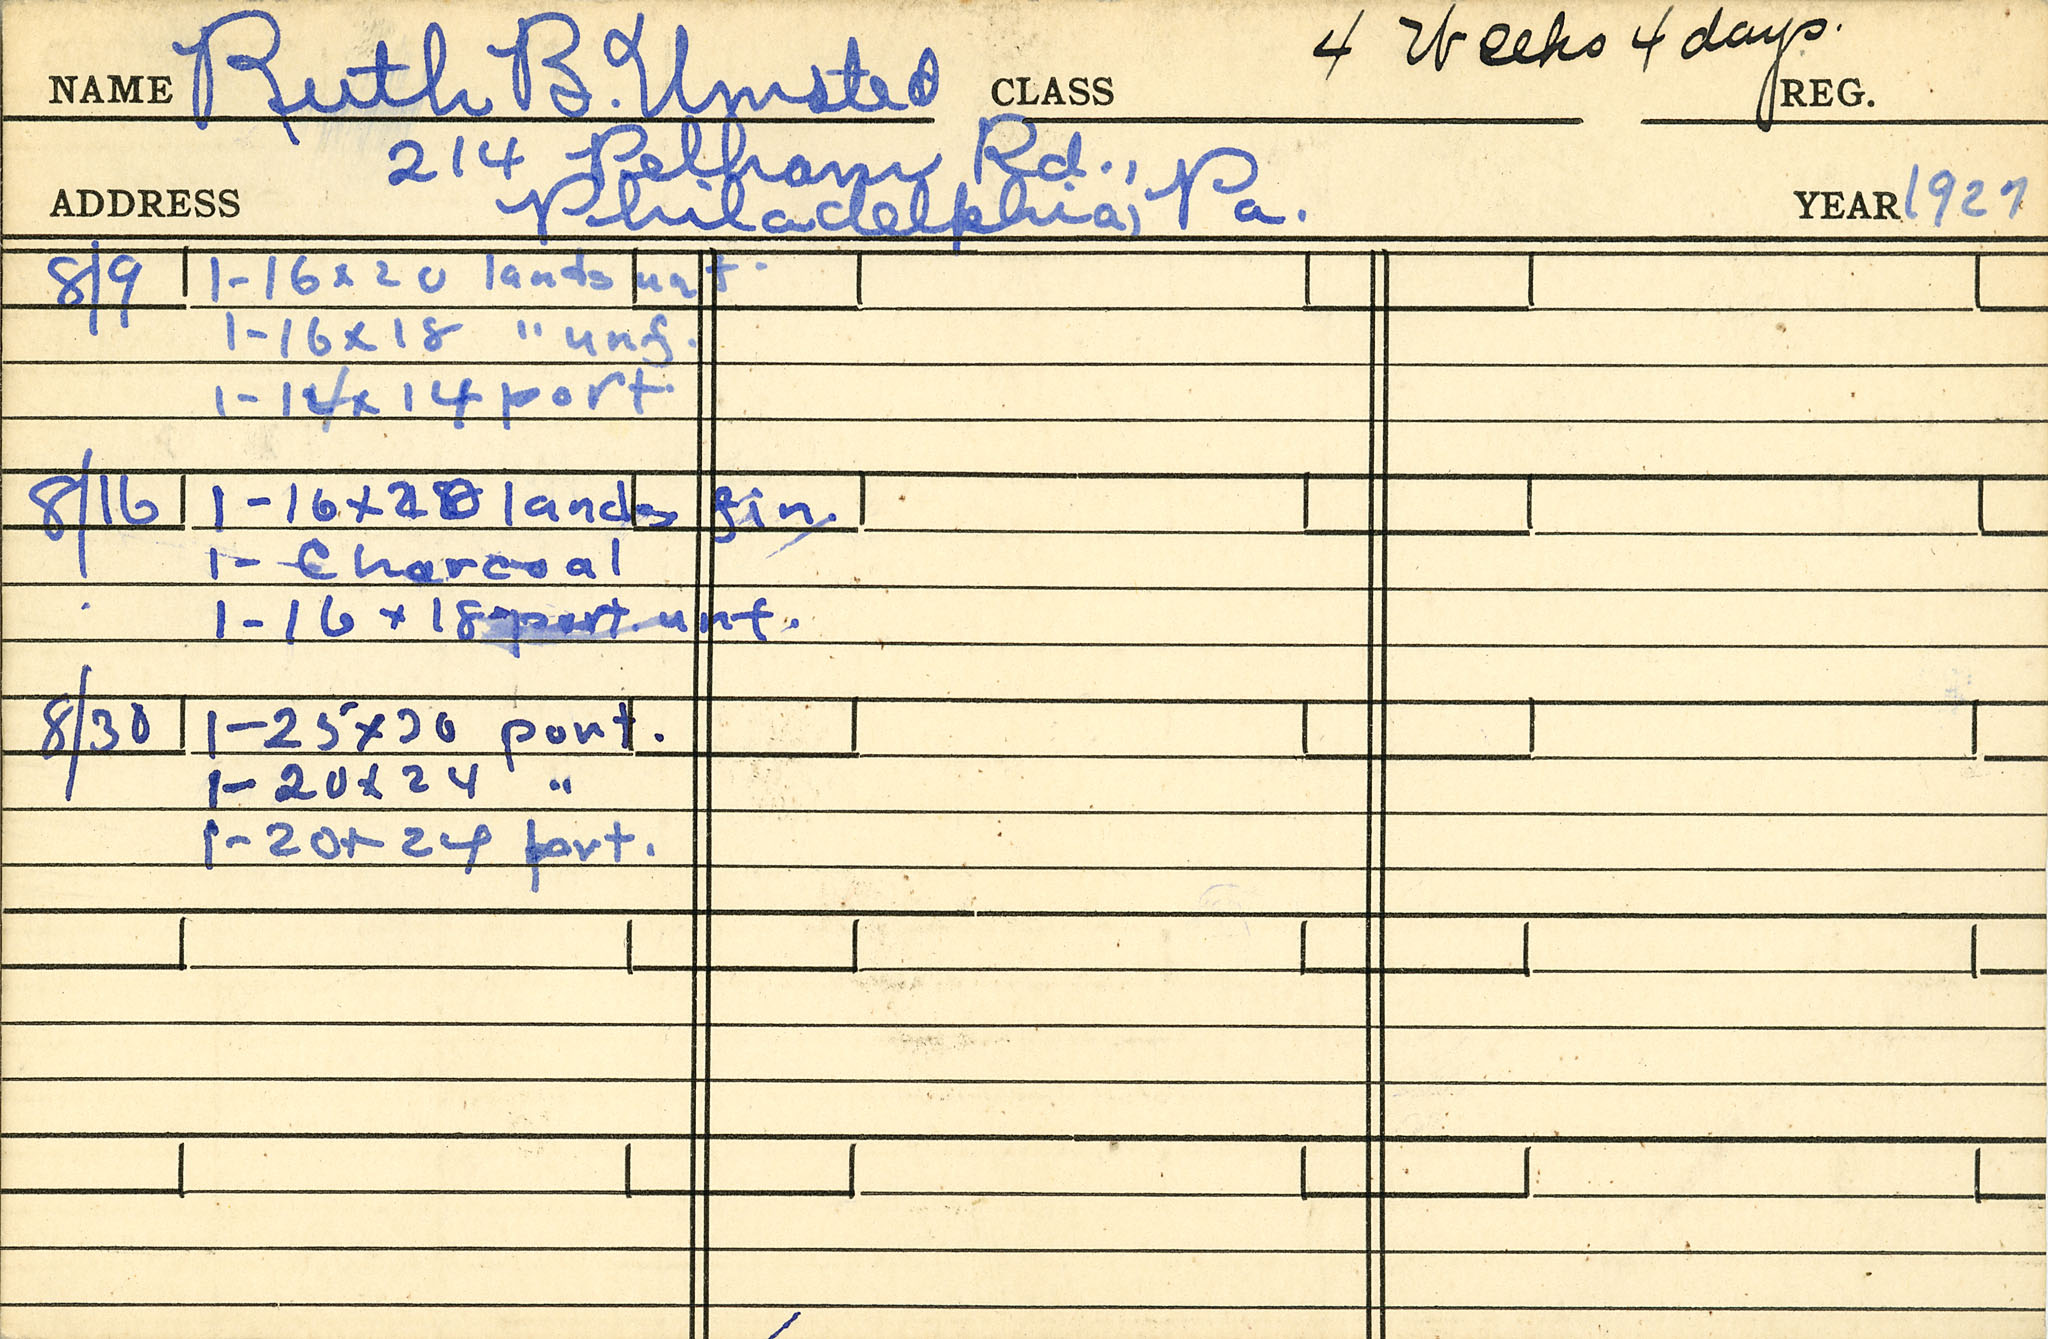 NAME Ruth B. Umsted CLASS 4 Weeks 4 days. REG.
214 Pelham Rd.,
ADDRESS Philadelphia, Pa. YEAR 1927
8/9 1-16x20 lands unt.
1-16x18 " unf.
1-12x14 port.
8/16 1-16x20 lands fin.
1- Charcoal
1-16x18 port. unt.
8/30 1-25x30 port.
1-20x24 "
1-20x24 port.